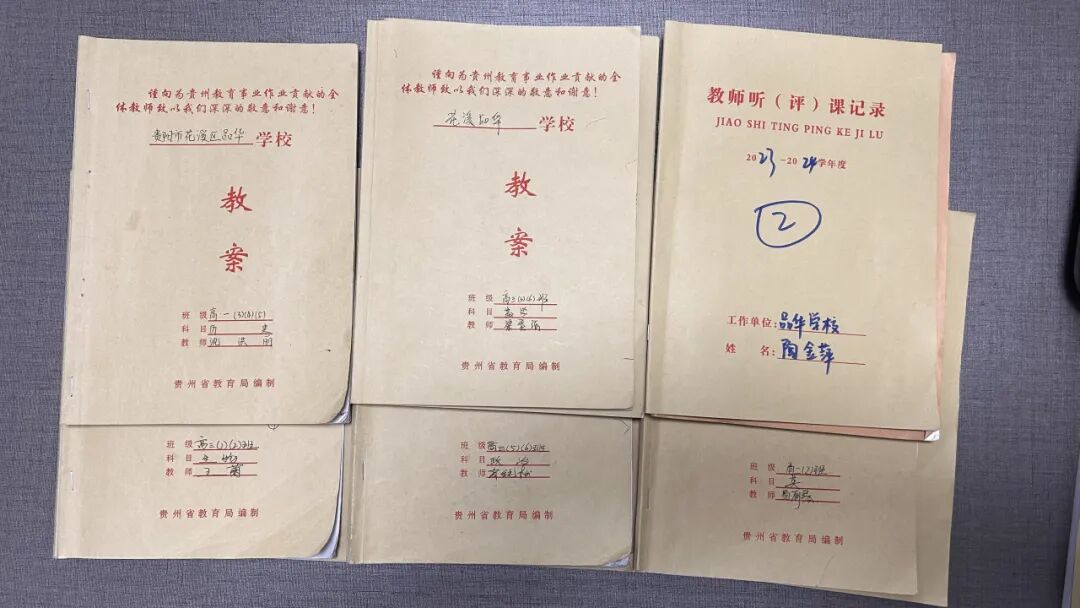 谨向为贵州教育事业作业贡献的全
体教师致以我们深深的敬意和谢意！
贵阳市花溪区品华学校
教
案
班 级 高一(3)(4)(5)
科 目 历 史
教 师
贵州省教育局编制
谨向为贵州教育事业作业贡献的全
体教师致以我们深深的敬意和谢意！
花溪品华 学校
教
案
班 级
科 目
教 师
贵州省教育局编制
教师听（评）课记录
JIAO SHI TING PING KE JI LU
2023-2024学年度
2
工作单位：品华学校
姓 名：陶金萍
班 级 高三(1)(2)班
科 目 生物
教 师
贵州省教育局编制
班 级
科 目 政 治
教 师
贵州省教育局编制
班 级 高一(2)班
科 目 英
教 师
贵州省教育局编制